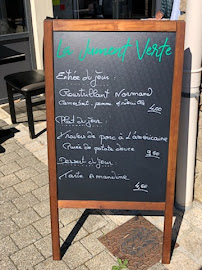 La Jument Verte
Entrée du jour :
Croustillant Normand
Camembert, pomme
Plat du jour :
Travers de porc à L'américaine
Purée de patate douce
9,00
Dessert du jour
Tarte Amandine
4,00